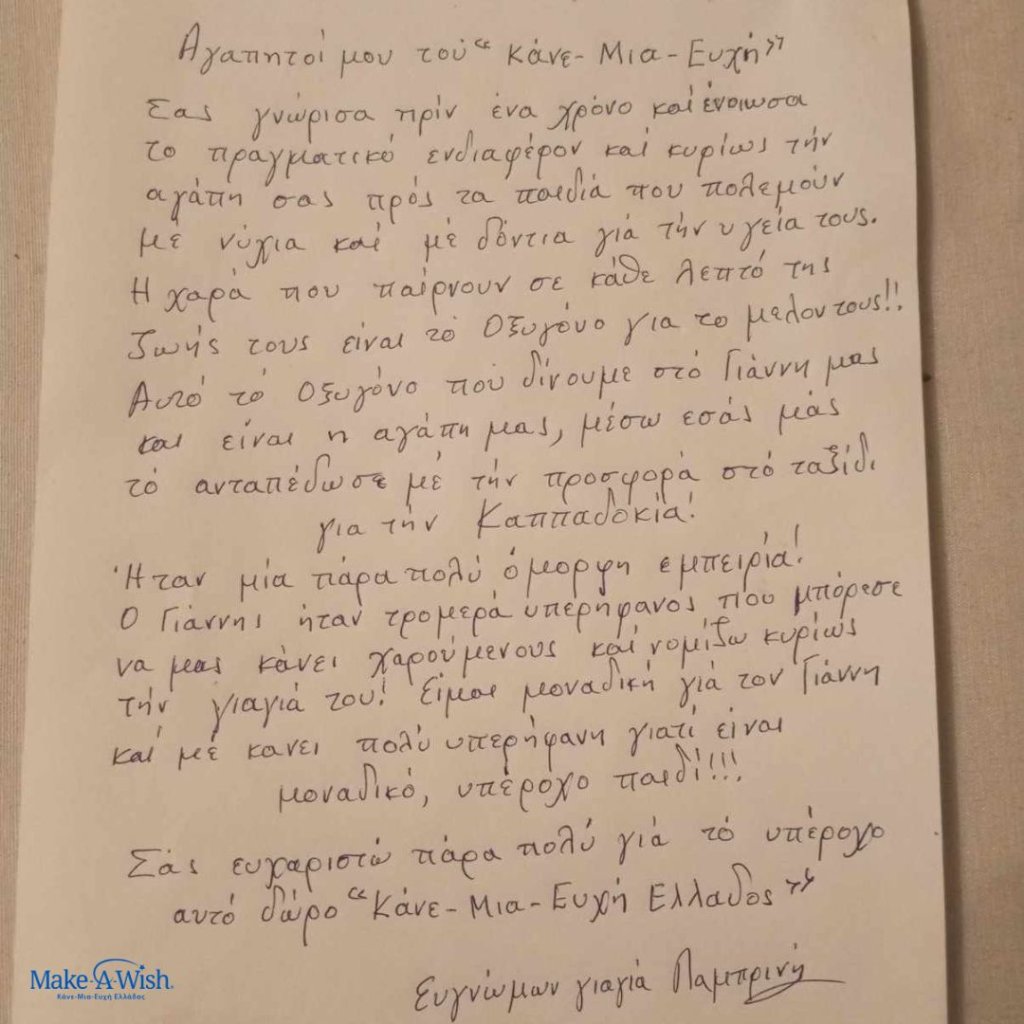 Αγαπητοί μου τού "Κάνε-Μια-Ευχή"
Σας γνώρισα πρίν ένα χρόνο καί ένοιωσα
το πραγματικό ενδιαφέρον καί κυρίως τήν
αγάπη σας πρός τα παιδιά που πολεμούν
μέ νύχια καί μέ δόντια γιά τήν υγεία τους.
Η χαρά που παίρνουν σε κάθε λεπτό της
ζωής τους είναι τό Οξυγόνο για το μελον τους!!
Αυτό τό Οξυγόνο πού δίνουμε στό Γιάννη μας
και είναι η αγάπη μας, μέσω εσάς μάς
τό ανταπέδωσε μέ τήν προσφορά στό ταξίδι
για τήν Καππαδοκία!
Ήταν μία πάρα πολύ όμορφη εμπειρία!
Ο Γιάννης ήταν τρομερά υπερήφανος που μπόρεσε
να μας κάνει χαρούμενους καί νομίζω κυρίως
τήν γιαγιά του! Είμαι μοναδική γιά τον Γιάννη
καί μέ κανει πολύ υπερήφανη γιατί είναι
μοναδικό, υπέροχο παιδί!!!
Σάς ευχαριστώ πάρα πολύ γιά τό υπέροχο
αυτό δώρο "Κάνε-Μια-Ευχή Ελλαδος"
Ευγνώμων γιαγιά Λαμπρινή
Make-A-Wish®
Κάνε-Μια-Ευχή Ελλάδος